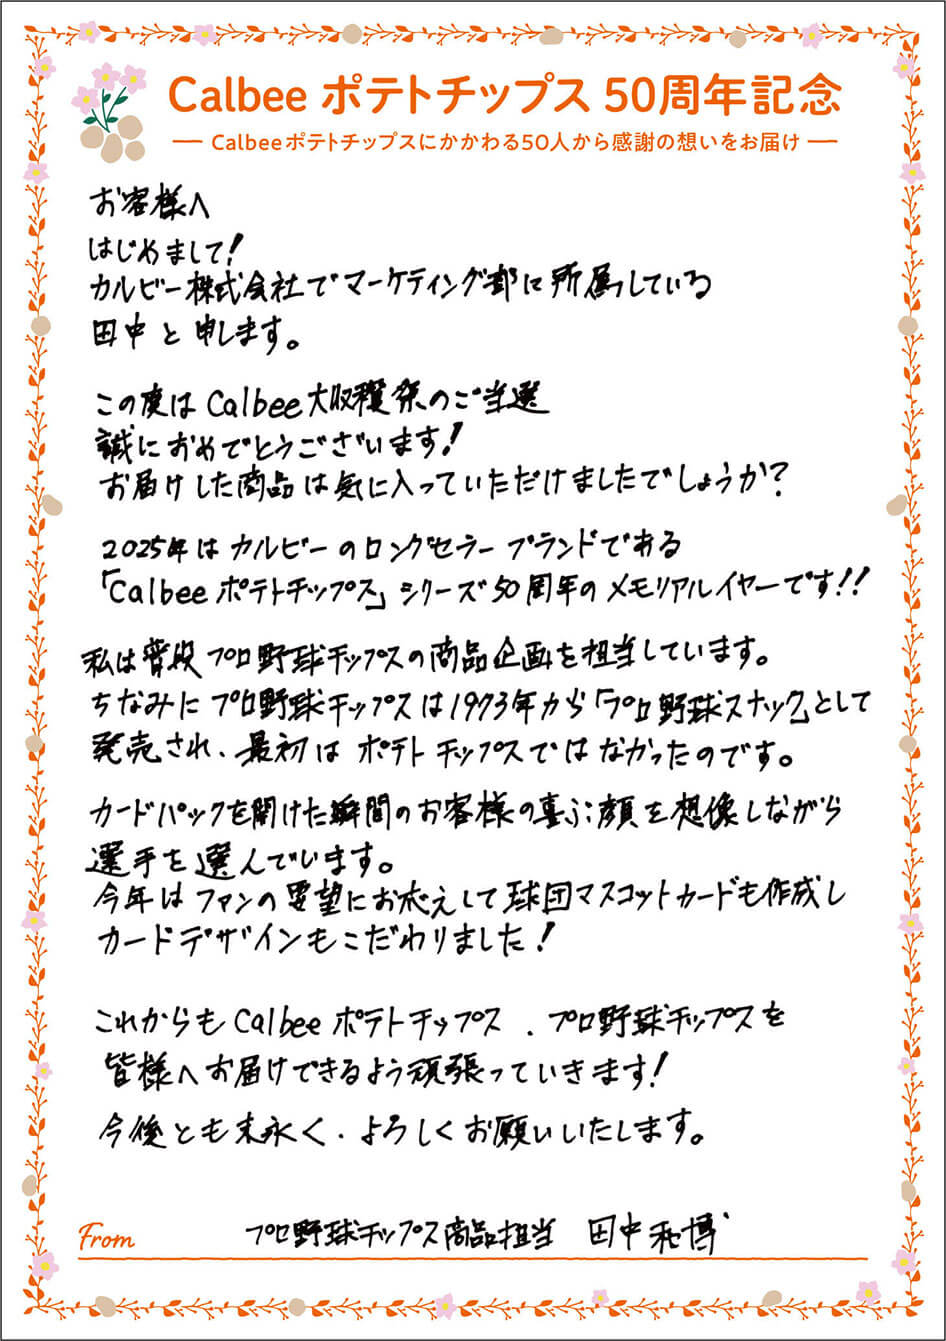 Calbee ポテトチップス 50周年記念
Calbeeポテトチップスにかかわる50人から感謝の想いをお届け
お客様へ
はじめまして!
カルビー株式会社でマーケティング部に所属している
田中と申します。
この度はCalbee大収穫祭のご当選
誠におめでとうございます!
お届けした商品は気に入っていただけましたでしょうか?
2025年はカルビーのロングセラーブランドである
「Calbeeポテトチップス」シリーズ50周年のメモリアルイヤーです!!
私は普段プロ野球チップスの商品企画を担当しています。
ちなみにプロ野球チップスは1973年から「プロ野球スナック」として
発売され、最初はポテトチップスではなかったのです。
カードパックを開けた瞬間のお客様の喜ぶ顔を想像しながら
選手を選んでいます。
今年はファンの要望にお応えして球団マスコットカードも作成し
カードデザインもこだわりました!
これからもCalbeeポテトチップス、プロ野球チップスを
皆様へお届けできるよう頑張っていきます!
今後とも末永く、よろしくお願いいたします。
From プロ野球チップス商品担当 田中和博